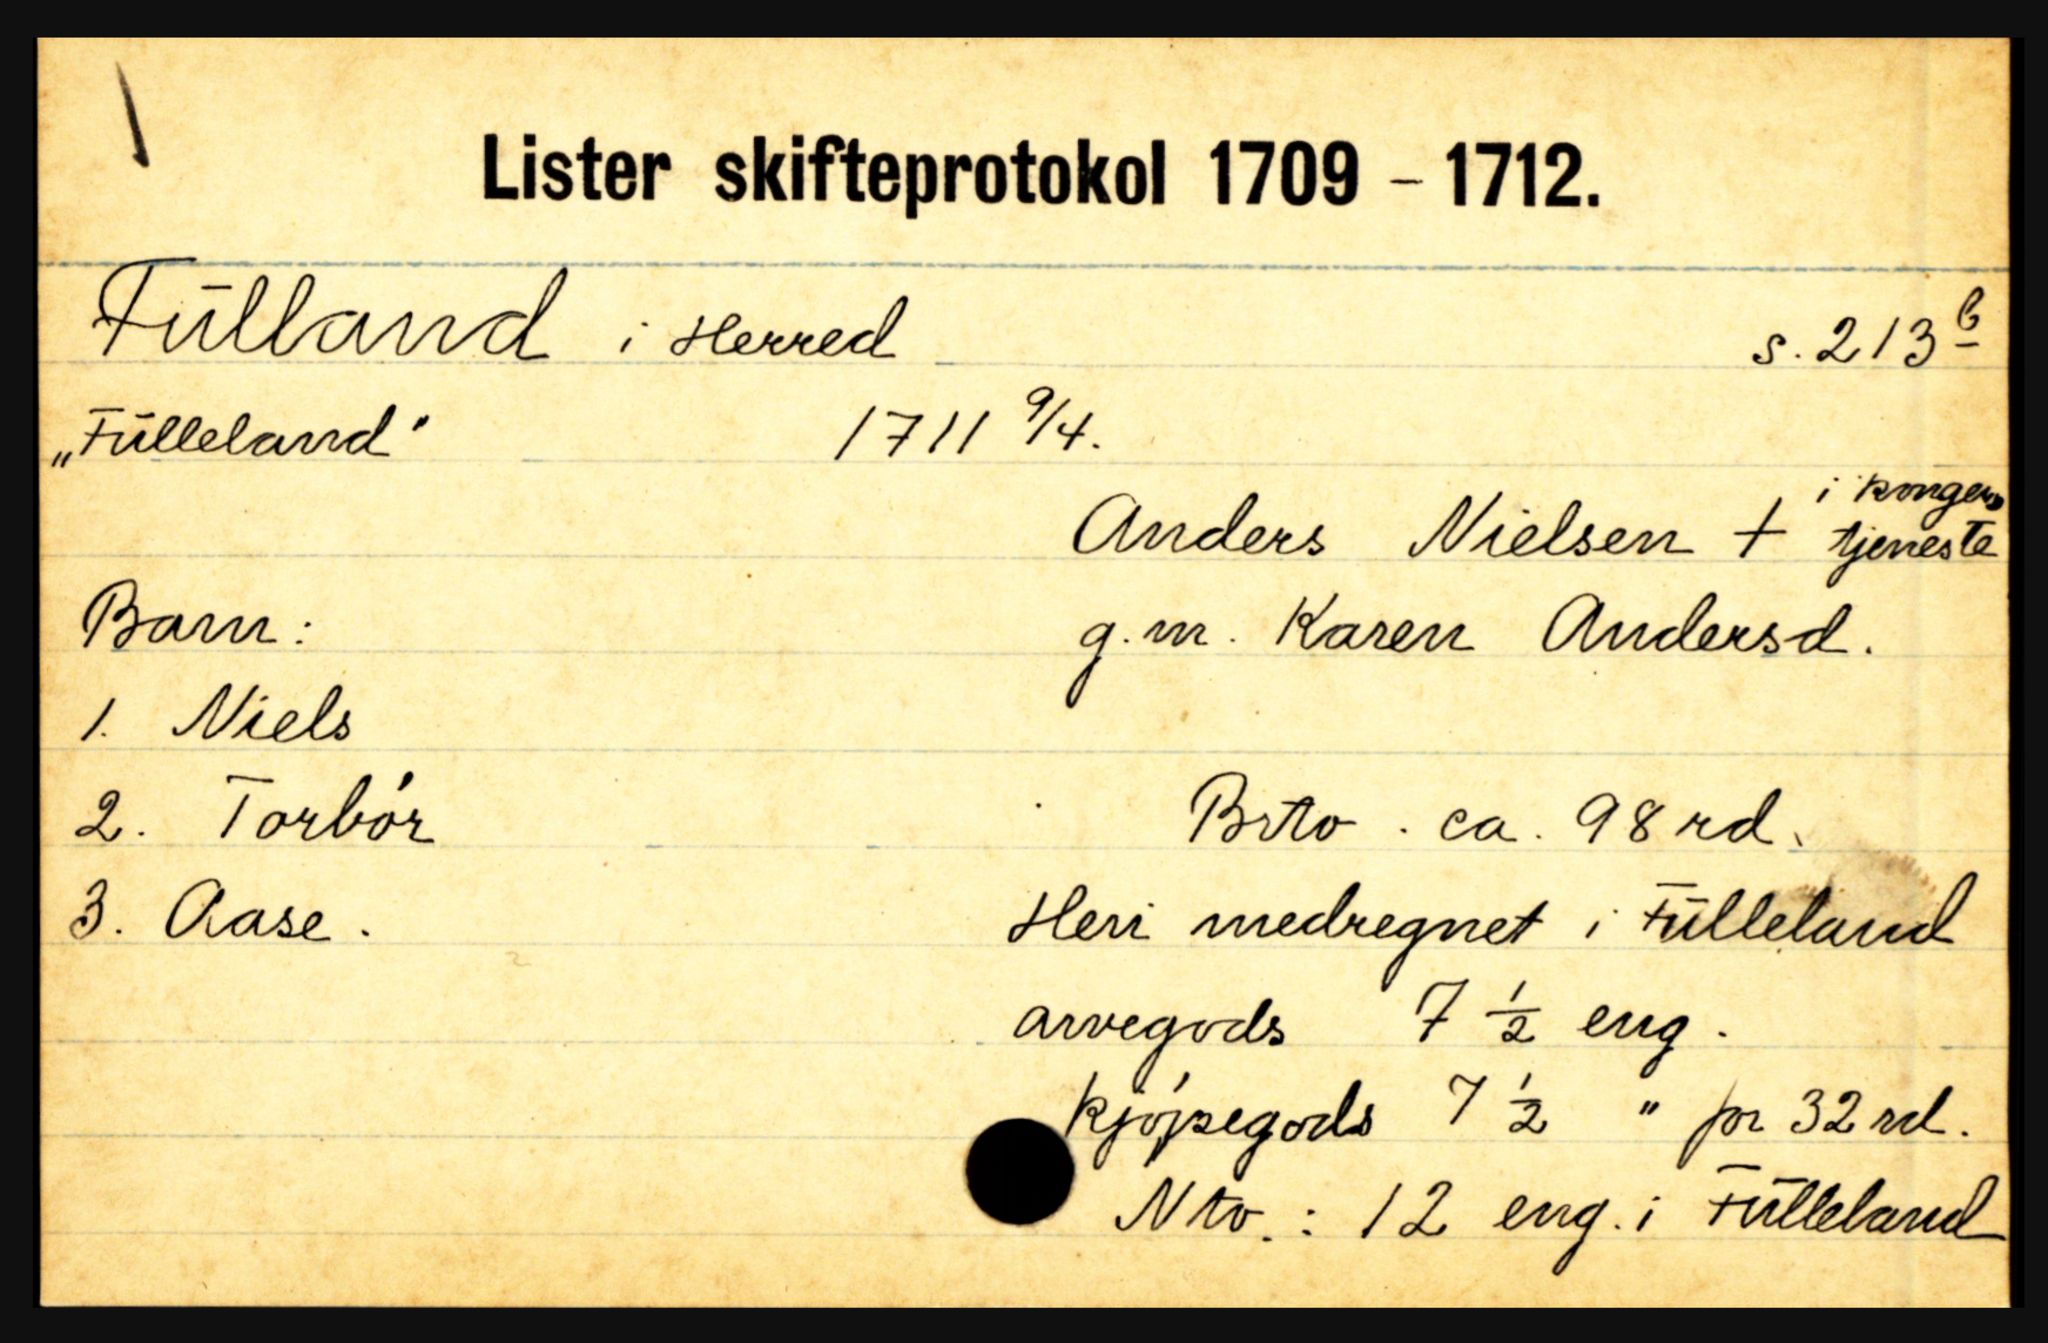 Lister skifteprotokol 1709 - 1712.
Fūlland i Herred s. 213 b
„Fūlleland" 1711 9/4.
Anders Nielsen † i kongens tjeneste
Barn: g.m. Karen Andersd.
1. Niels
2. Torbór Btto. ca. 98 rd.
3. Aase. Heri medregnet i Fūlleland
arvegods 7 1/2 eng.
kjópegods 7 1/2 " for 32 rd.
Nto.: 12 eng. i Fūlleland